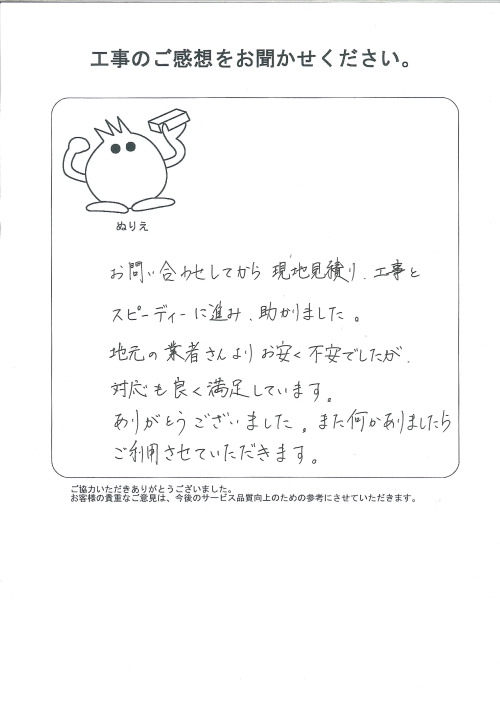 工事のご感想をお聞かせください。
ぬりえ
お問い合わせしてから現地見積り、工事と
スピーディーに進み、助かりました。
地元の業者さんよりお安く不安でしたが、
対応も良く満足しています。
ありがとうございました。また何かありましたら
ご利用させていただきます。
ご協力いただきありがとうございました。
お客様の貴重なご意見は、今後のサービス品質向上のための参考にさせていただきます。